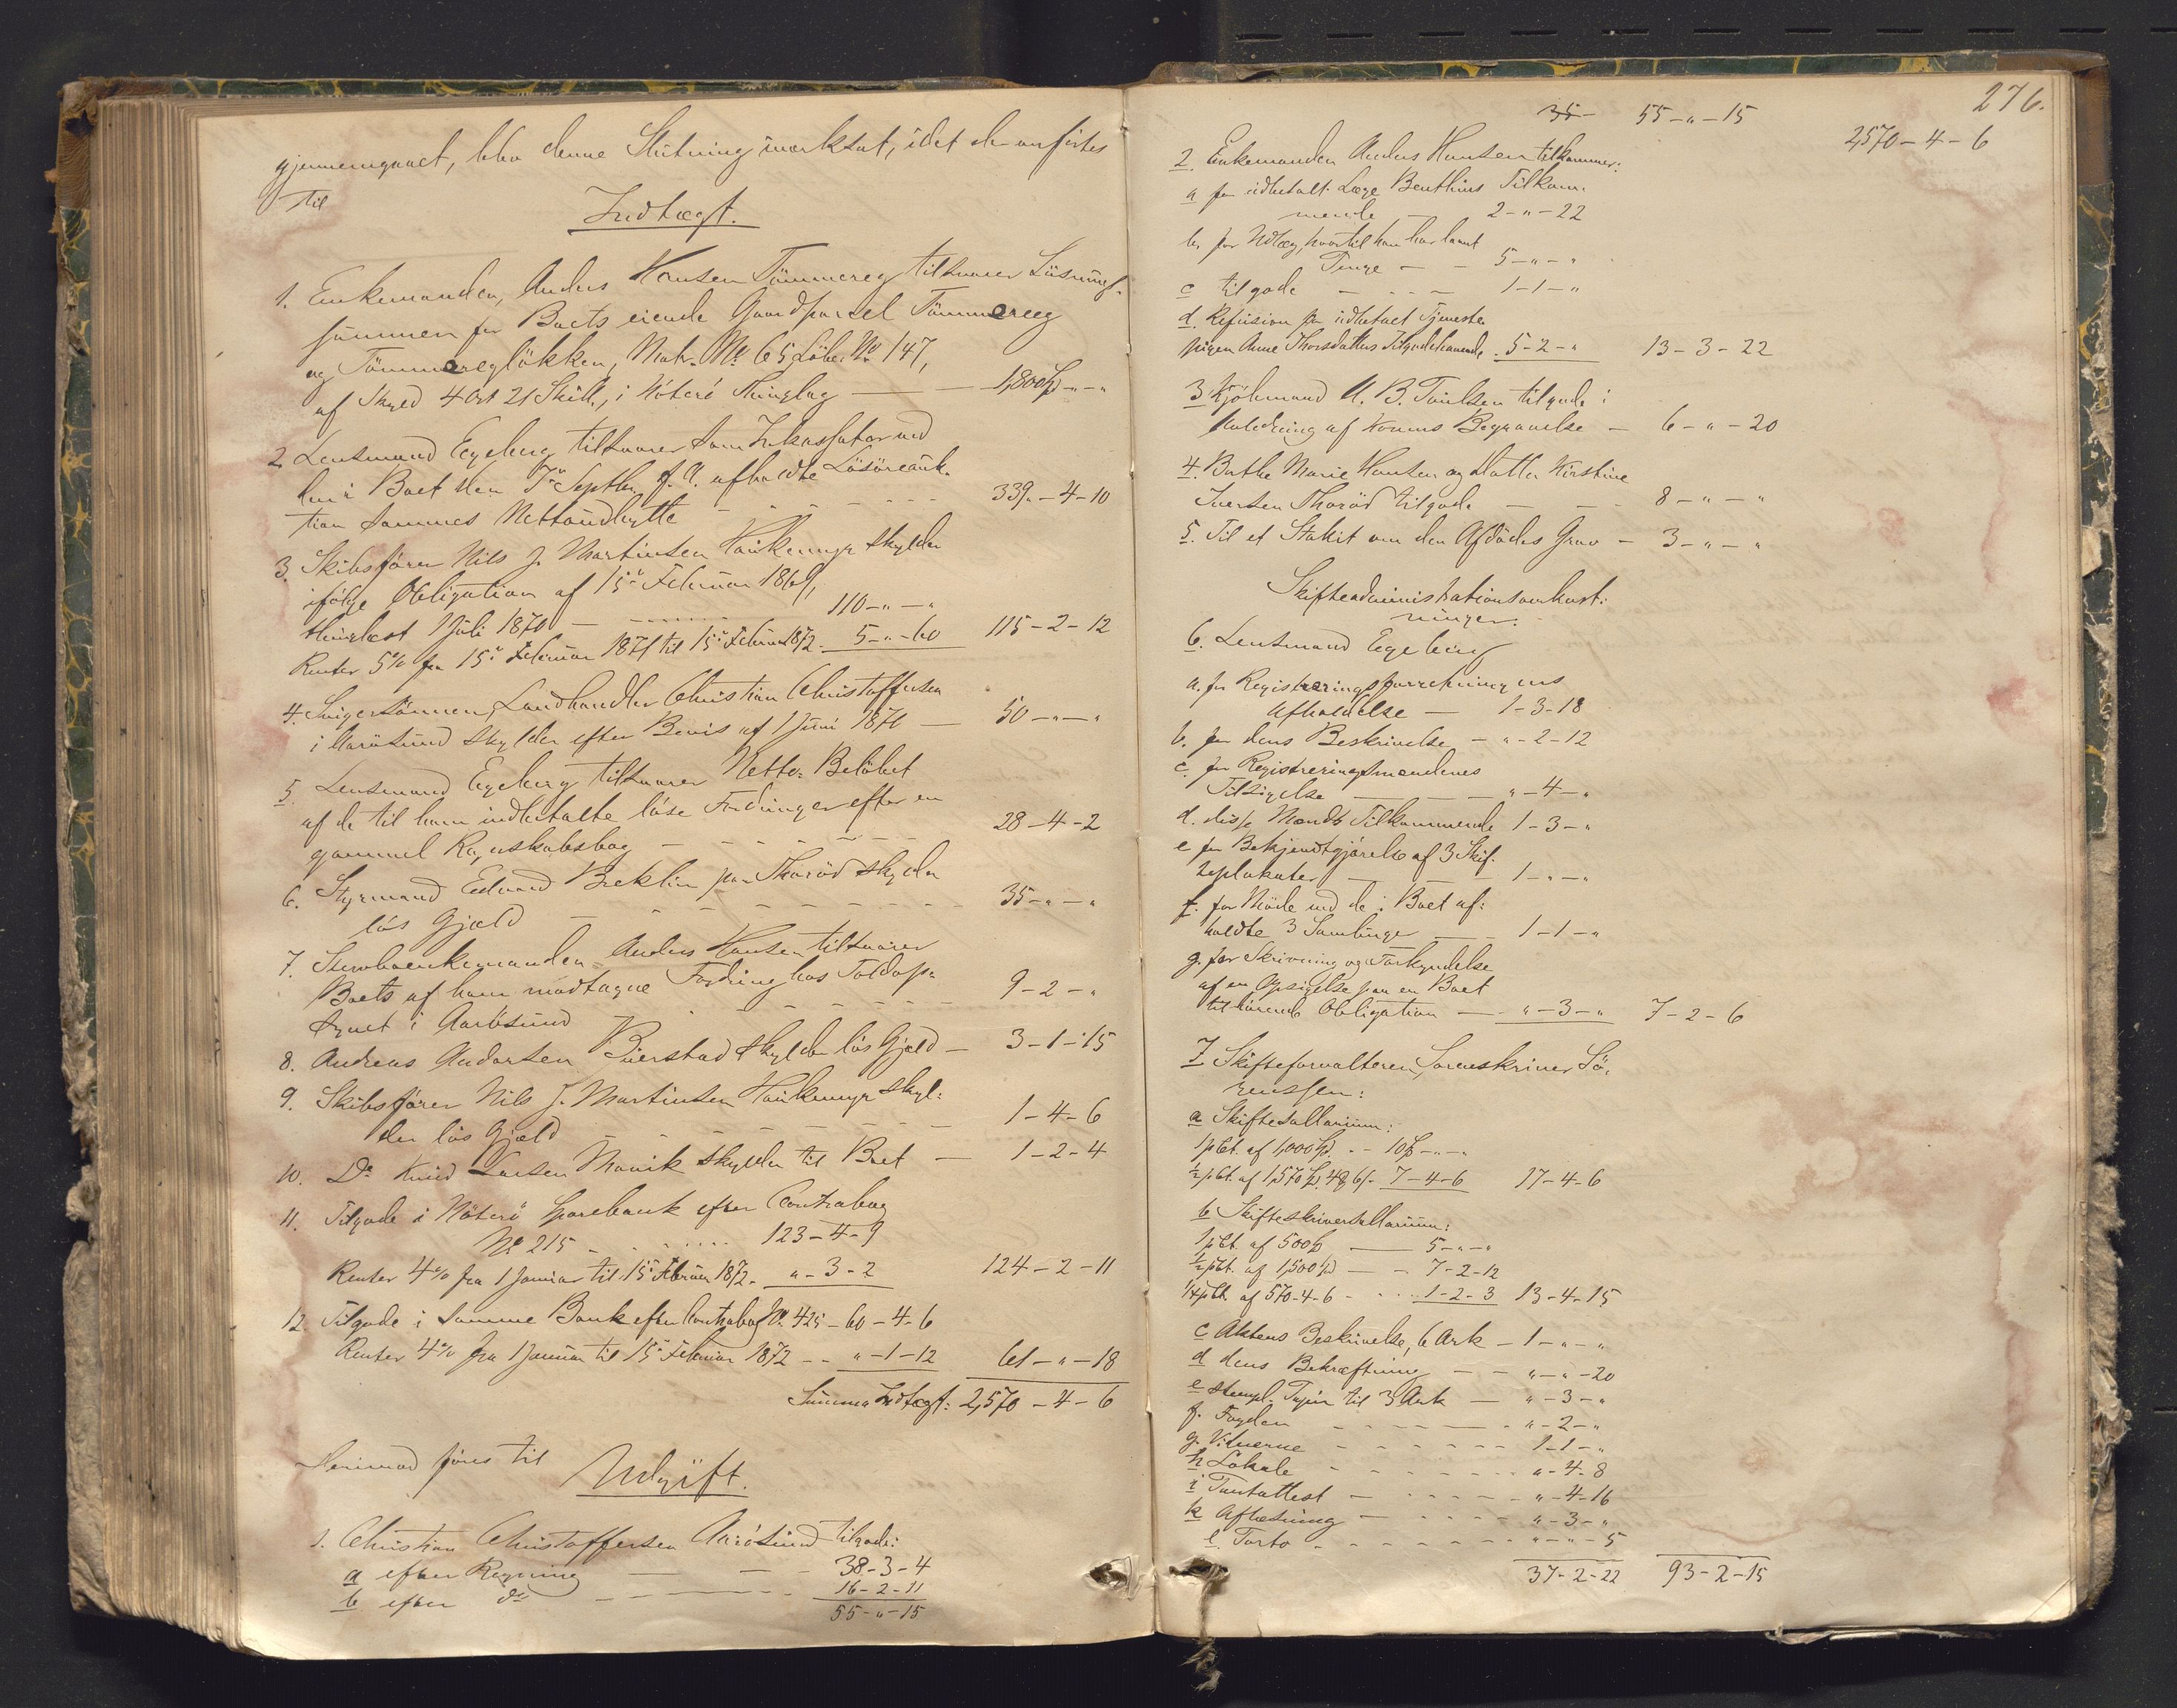 gjennemgaaet, blev denne Slutning iværksat, idet der anførtes
til
Indtægt.
1. Enkemanden, Anders Hansen Tømmereg tilsvarer Løsnings-
summen for Boets eiende Gaardparcel Tømmereg
og Tømmereglökken, Matr. No 65 Löbe No 147,
af Skyld 4 Ort 21 Skill, i Nöterö Thinglag — 1,800 Spd - " - "
2 Lensmand Egeberg tilsvarer som Inkassator ved
den i Boet den 7de Septbr. f. A. afholdte Lösöreauk-
tion sammes Nettoudbytte - - - 339 - 4 - 10
3. Skibsfører Nils J. Martinsen Haukemyr skylder
ifölge Obligation af 15de Februar 1869,
thinglæst 1 Juli 1870 — 110 - " - "
Renter 5% fra 15de Februar 1871 til 15de Februar 1872 - 5 - " - 60 115 - 2 - 12
4. Svigersønnen, Landhandler Christian Christoffersen
i Aarösund skylder efter Bevis af 1 Juni 1871 — 50 - " - "
5. Lensmand Egeberg tilsvarer Netto-Belöbet
af de til ham indbetalte löse Fordringer efter en
gammel Regnskabsbog — 28 - 4 - 2
6. Styrmand Edvard Breklin paa Thoröd skylder
lös Gjæld — 35 - " - "
7. Stervboenkemanden Anders Hansen tilsvarer
Boets af ham modtagne Fordring hos Toldop-
synet i Aarösund 9 - 2 - "
8. Andreas Andersen Buerstad skylder lös Gjæld — 3 - 1 - 15
9. Skibsfører Nils J. Martinsen Haukemyr skyl-
der lös Gjæld 1 - 4 - 6
10. Do Knud Larsen skylder til Boet — 1 - 2 - 4
11. Tilgode i Nöterö Sparebank efter Contrabog
No 215 - 123 - 4 - 9
Renter 4% fra 1 Januar til 15de Februar 1872 - " - 3 - 2 124 - 2 - 11
12. Tilgode i samme Bank efter Contrabog No 425 - 60 - 4 - 6
Renter 4% fra 1 Januar til 15de Februar 1872 - - " - 1 - 12 61 - " - 18
Summa Indtægt: 2,570 - 4 - 6
Herimod føres til
Udgift.
1. Christian Christoffersen Aarösund tilgode:
a efter Regning — 38 - 3 - 4
b efter do — 16 - 2 - 11
55 - " - 15
276.
35 - 55 - " - 15
2570 - 4 - 6
2. Enkemanden Anders Hansen tilkommer:
a for udbetalt Læge Benthins Tilkom-
mende — 2 - " - 22
b. for Udlæg, hvortil han har laant
Penge — 5 - " - "
c tilgode — 1 - 1 - "
d. Refusion for udbetalt Tjeneste-
pigen Anne Thorsdatters Tilgodehavende. 5 - 2 - " 13 - 3 - 22
3 Kjöbmand A. B. Paulsen tilgode i
Anledning af Konens Begravelse — 6 - " - 20
4. Berthe Marie Hansen og Datter Kirstine
Iversen Thoröd tilgode — 8 - " - "
5. Til et Stakit om den Afdödes Grav — 3 - " - "
Skifteadministrationsomkost-
ninger:
6. Lensmand Egeberg
a. for Registreringsforretningens
Afholdelse — 1 - 3 - 18
b. for dens Beskrivelse — " - 2 - 12
c. for Registreringsmændenes
Tilsigelse — " - 4 - "
d. disse Mænds Tilkommende 1 - 3 - "
e for Bekjendtgjörelse af 3 Skif-
teplakater — 1 - " - "
f. for Möde ved de i Boet af-
holdte 3 Samlinger — 1 - 1 - "
g. for Skrivning og Forkyndelse
af en Opsigelse paa en Boet
tilhörende Obligation — " - 3 - " 7 - 2 - 6
7 Skifteforvalteren, Sorenskriver Sö-
renssen:
a Skiftesallarium:
1 pCt. af 1,000 Spd. - - 10 Spd - " - "
½ pCt. af 1,570 Spd. 4 6 - 7 - 4 - 6 17 - 4 - 6
b Skifteskriversallarium:
1 pCt. af 500 Spd — 5 - " - "
½ pCt. af 1,500 Spd — 7 - 2 - 12
¼ pCt. af 570 - 4 - 6 - 1 - 2 - 3 13 - 4 - 15
c Aktens Beskrivelse, 6 Ark — 1 - " - "
d dens Bekræftning — " - " - 20
e stempl. Papir til 3 Ark — " - 3 - "
f. Fogden " - 2 - "
g. Vidnerne 1 - 1 - "
h Lokale " - 4 - 8
i Pantattest — " - 4 - 16
k Aflæsning — " - 3 - "
l. Porto " - " - 5
37 - 2 - 22 93 - 2 - 15